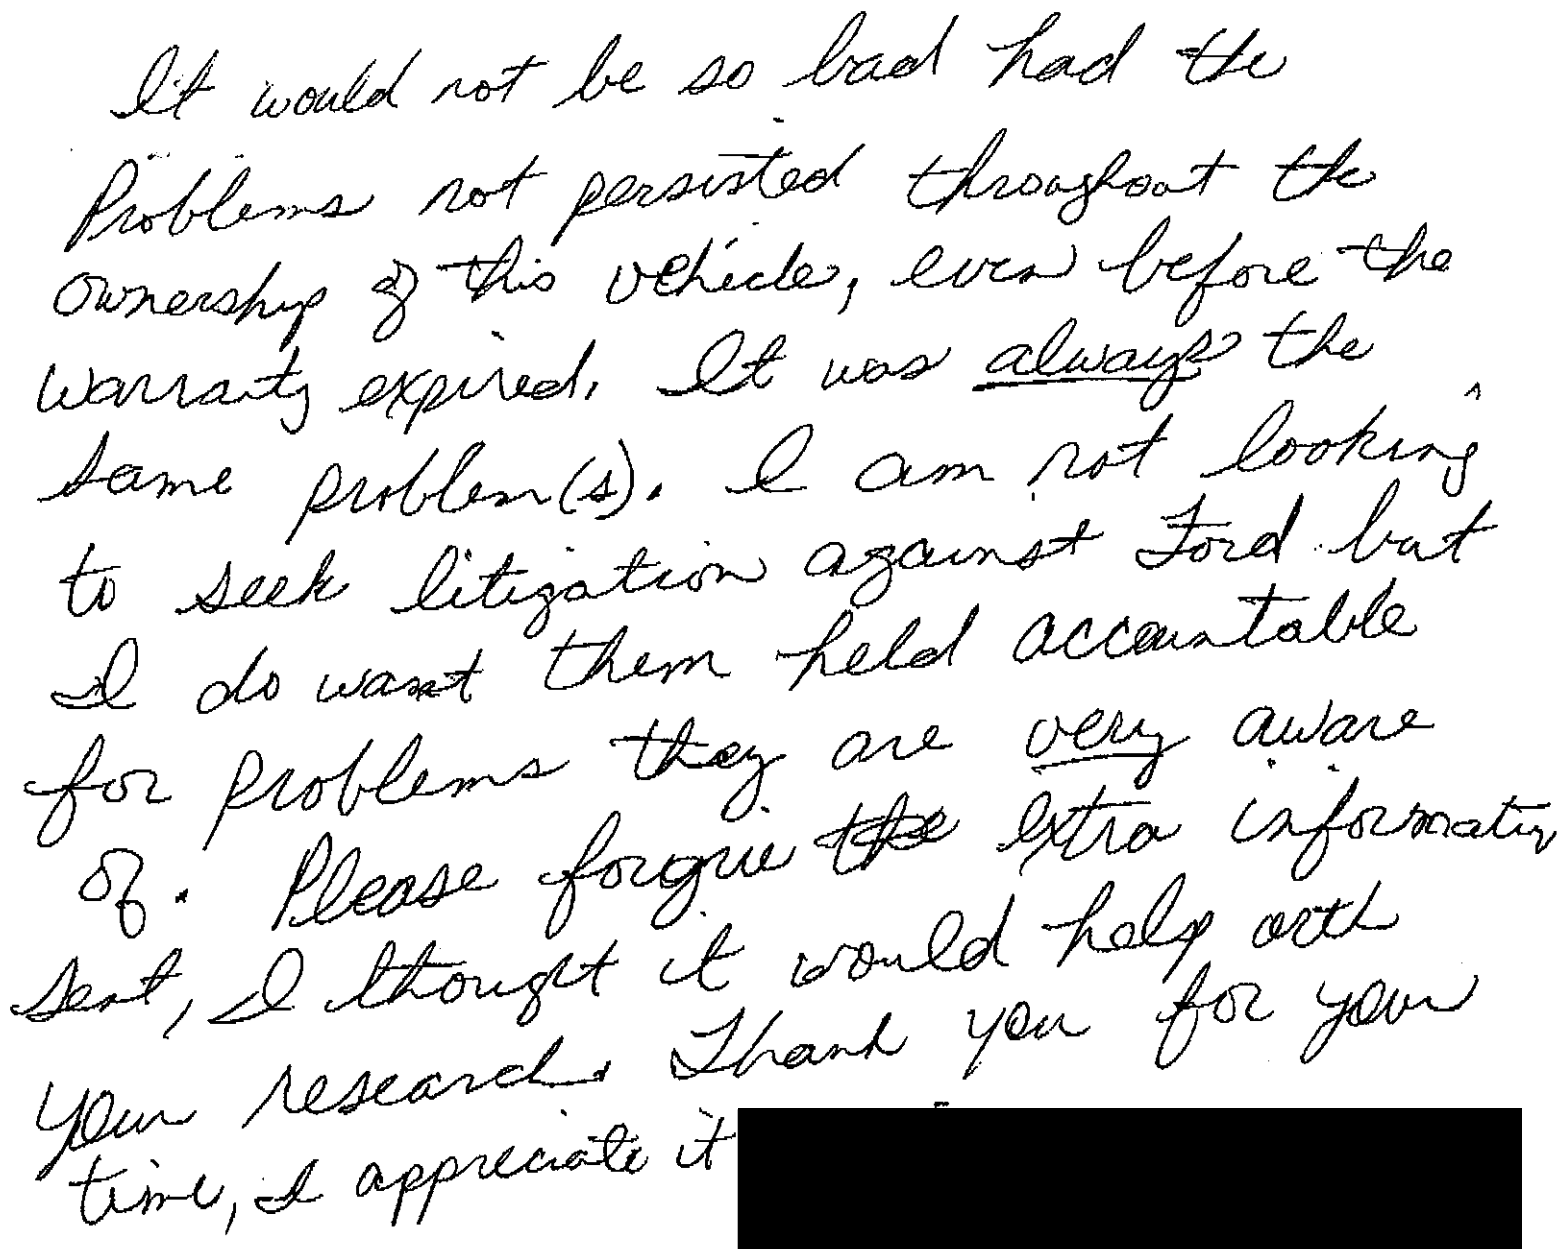 It would not be so bad had the
Problems not persisted throughout the
ownership of this vehicle, even before the
warranty expired. It was always the
same problem(s). I am not looking
to seek litigation against Ford but
I do want them held accountable
for problems they are very aware
of. Please forgive the extra information
sent, I thought it would help with
your research. Thank you for your
time, I appreciate it